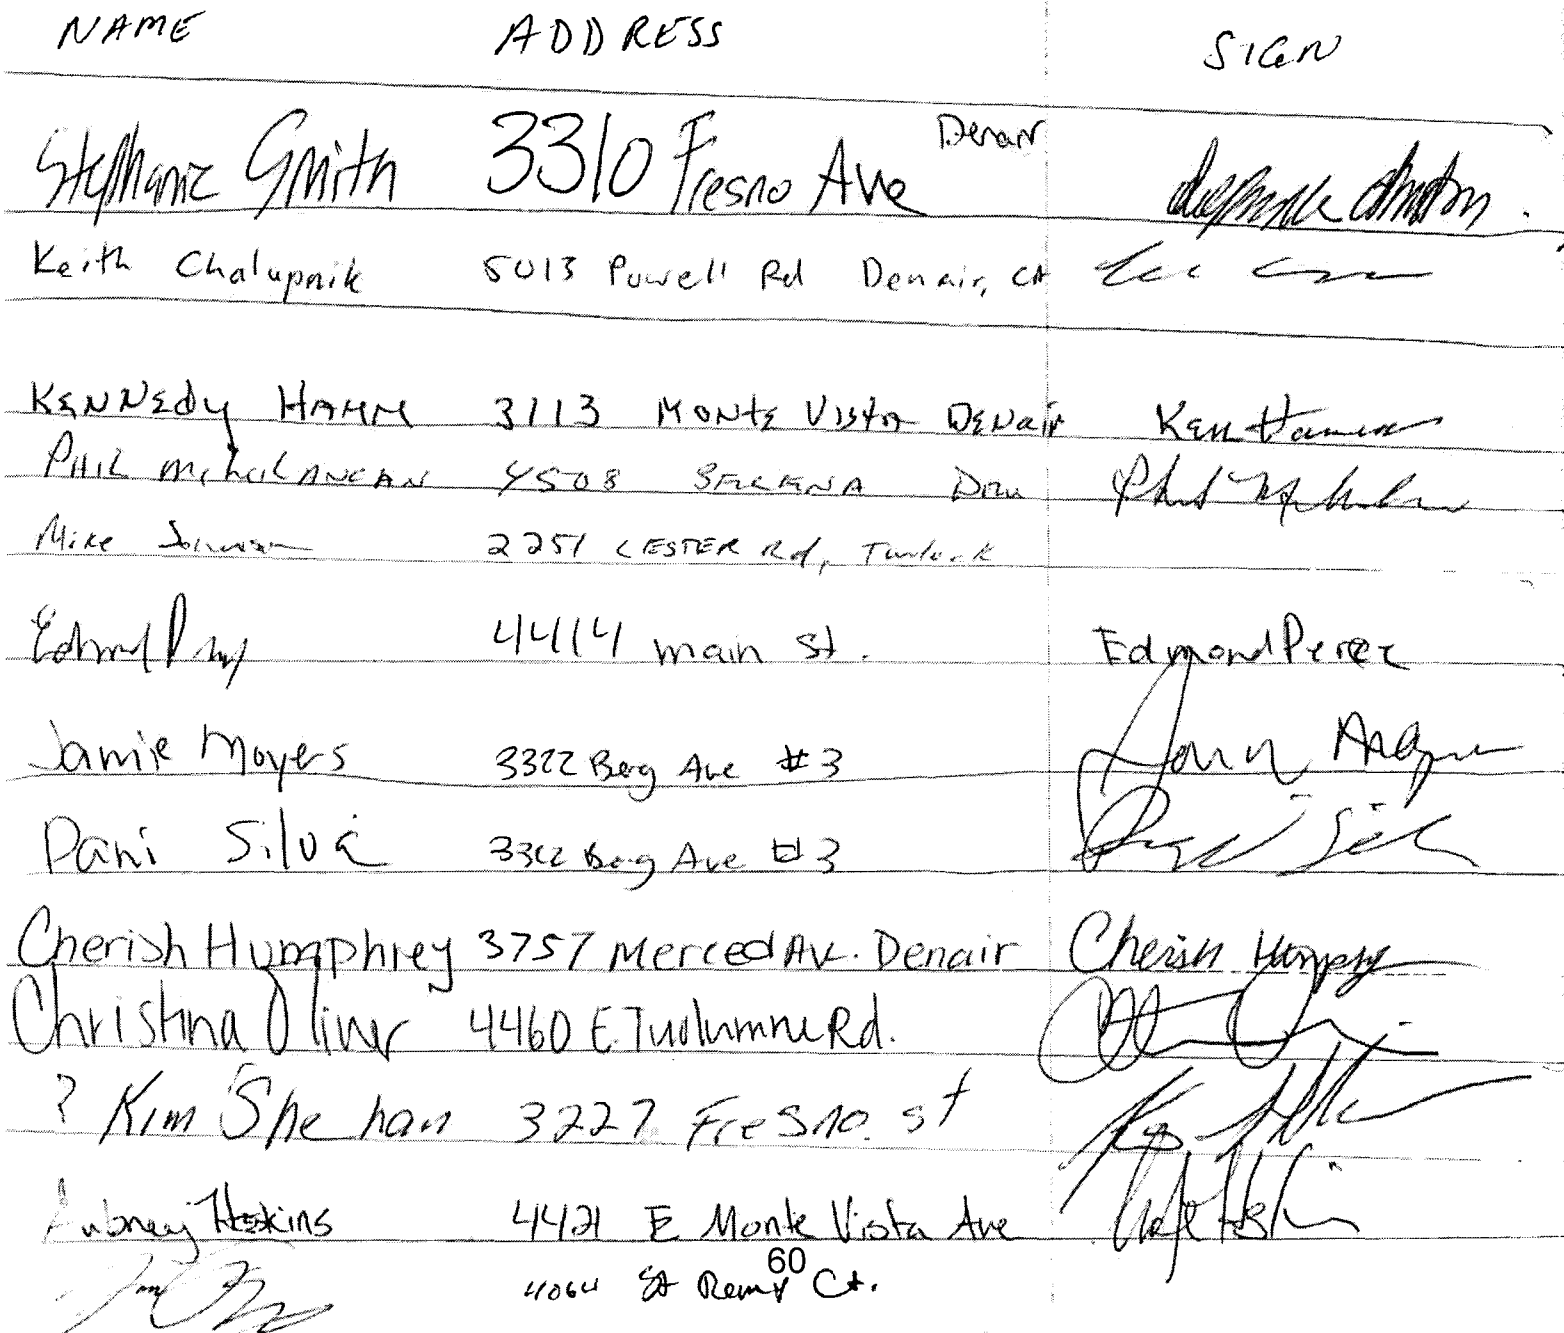 NAME ADDRESS SIGN
Stephanie Smith 3310 Fresno Ave Denair
Keith Chalupnik 5013 Powell Rd Denair, CA
KENNEdy HAMM 3113 MONTE VISTA DENair Ken Hamm
PHIL 4508
Mike 2251 LESTER Rd, Turlock
4414 main st. Edmond Perez
Jamie Moyers 3322 Berg Ave #3
Dani Silva 3322 Berg Ave #3
Cherish Humphrey 3757 Merced Av. Denair Cherish Humphrey
Christina Oliver 4460 E. Tuolumne Rd.
? Kim Shehan 3227 Fresno. st
Aubrey Hoskins 4421 E Monte Vista Ave
4064 St Remy Ct.
60